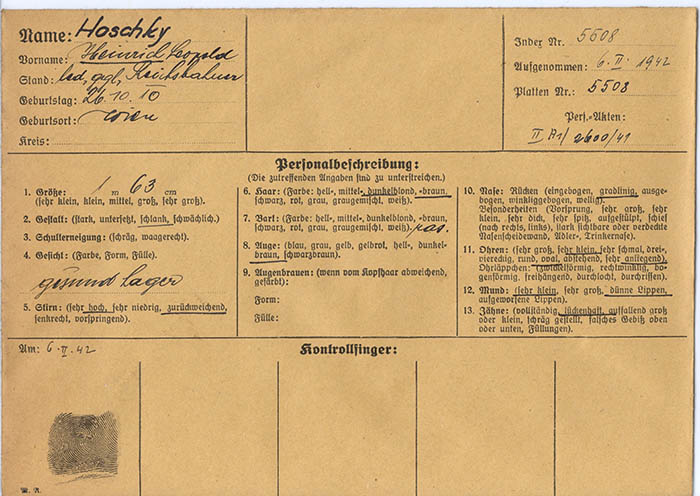 Name: Hoschky
Vorname: Heinrich Leopold
Stand: led, ggl,
Geburtstag: 26.10.10
Geburtsort: Wien
Kreis:
Index Nr. 5508
Aufgenommen: 6. II. 1942
Platten Nr.: 5508
Pers.-Akten:
II 2600/41
Personalbeschreibung:
(Die zutreffenden Angaben sind zu unterstreichen.)
1. Größe: 1 m 63 cm
(sehr klein, klein, mittel, groß, sehr groß).
2. Gestalt: (stark, untersetzt, schlank, schwächlich).
3. Schulterneigung: (schräg, waagerecht).
4. Gesicht: (Farbe, Form, Fülle).
gesund hager
5. Stirn: (sehr hoch, sehr niedrig, zurückweichend,
senkrecht, vorspringend).
6. Haar: (Farbe: hell-, mittel-, dunkelblond, -braun,
schwarz, rot, grau, graugemischt, weiß).
7. Bart: (Farbe: hell-, mittel-, dunkelblond, -braun,
schwarz, rot, grau, graugemischt, weiß). ras.
8. Auge: (blau, grau, gelb, gelbrot, hell-, dunkel-
braun, schwarzbraun).
9. Augenbrauen: (wenn vom Kopfhaar abweichend,
gefärbt):
Form:
Fülle:
10. Nase: Rücken (eingebogen, gradlinig, ausge-
bogen, winkliggebogen, wellig).
Besonderheiten (Vorsprung, sehr groß, sehr
klein, sehr dick, sehr spitz, aufgestülpt, schief
(nach rechts, links), stark sichtbare oder verdeckte
Nasenscheidewand, Adler-, Trinkernase).
11. Ohren: (sehr groß, sehr klein, sehr schmal, drei-,
viereckig, rund, oval, abstehend, sehr anliegend),
Ohrläppchen: (zwickelförmig, rechtwinklig, bo-
genförmig, freihängend, durchlocht, durchrissen).
12. Mund: (sehr klein, sehr groß, dünne Lippen,
aufgeworfene Lippen).
13. Zähne: (vollständig, lückenhaft, auffallend groß
oder klein, schräg gestellt, falsches Gebiß oben
oder unten, Füllungen).
Am: 6.II.42
Kontrollfinger: